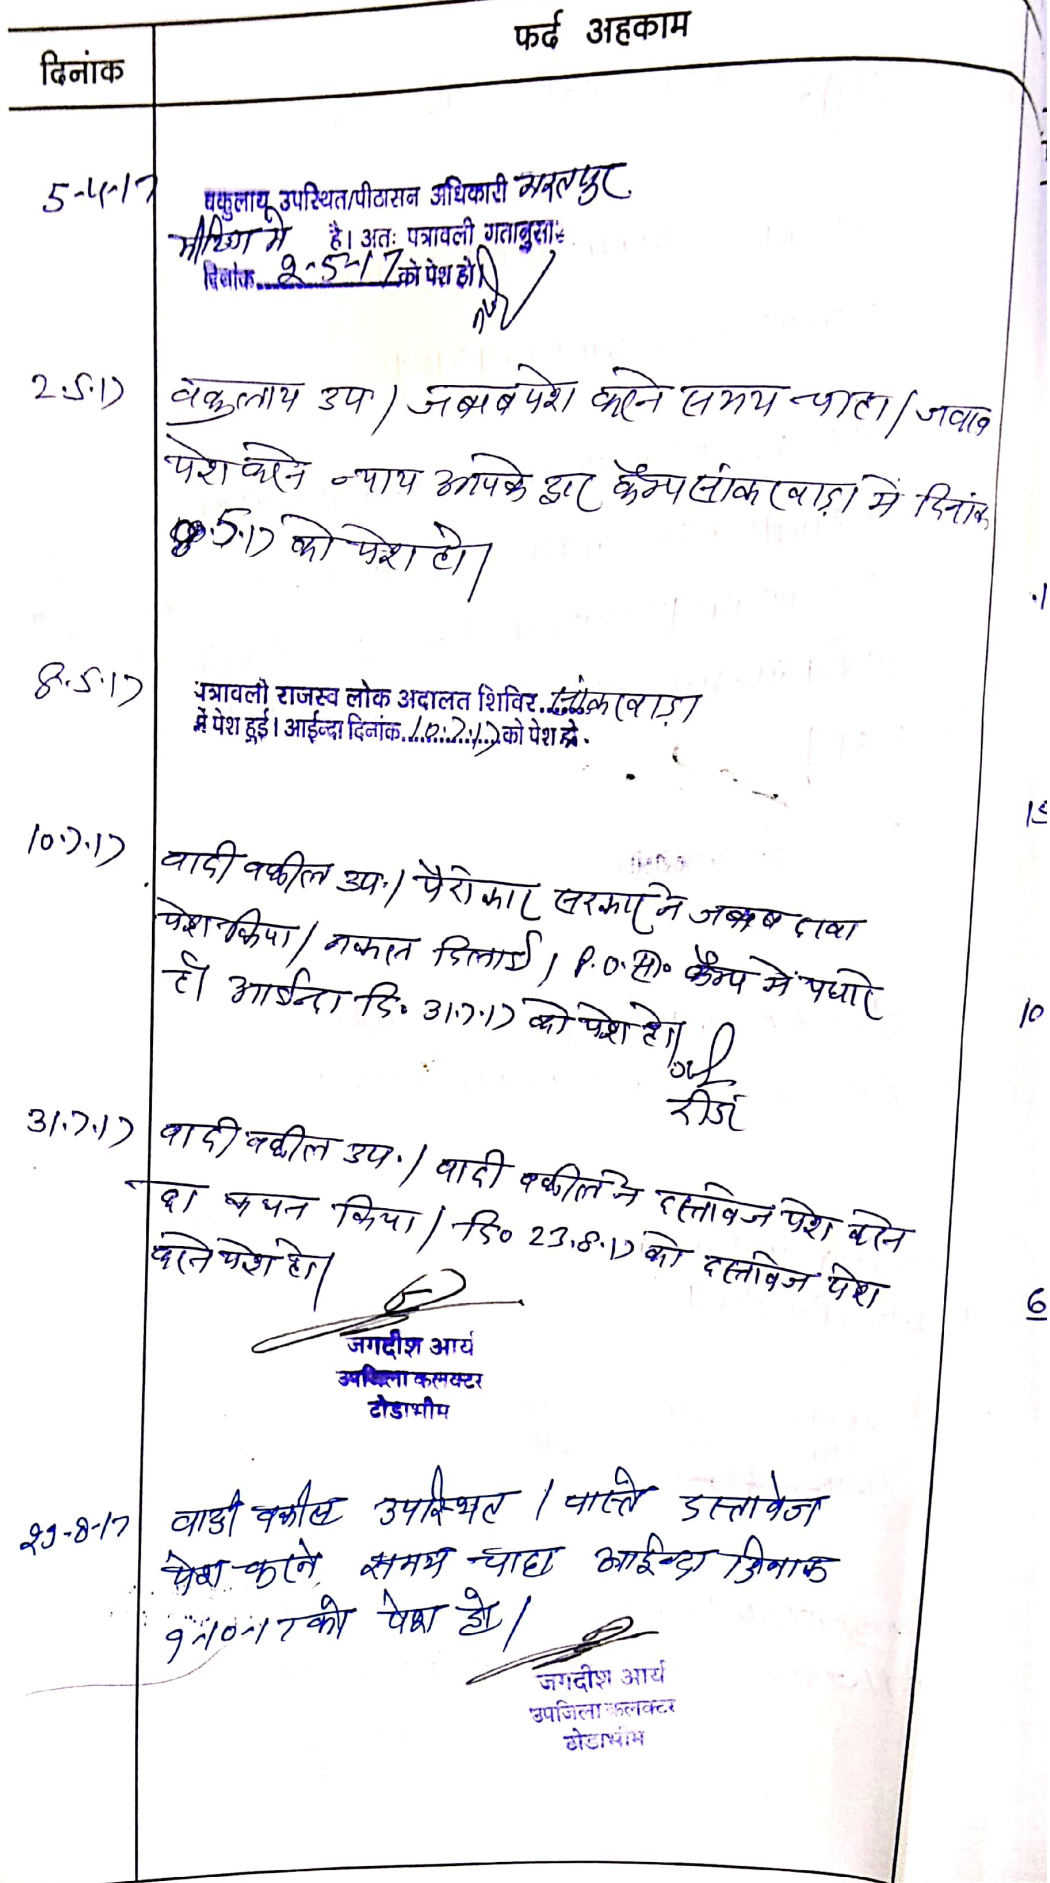 फर्द अहकाम
दिनांक
5-4-17 वकुलाय उपस्थित/पीठासन अधिकारी भरतपुर
मीटिंग में है। अतः पत्रावली गतानुसार
दिनांक 2-5-17 को पेश हो।
2.5.17 वकुलाय उप। जबाब पेश करने समय चाहा। जवाब
पेश करने न्याय आपके द्वार कैम्प सांकरवाड़ा में दिनांक
8.5.17 को पेश हो।
8.5.17 पत्रावली राजस्व लोक अदालत शिविर सांकरवाड़ा
में पेश हुई। आईन्दा दिनांक 10.7.17 को पेश हो.
10.7.17 वादी वकील उप.। पैरोकार सरकार ने जबाब दावा
पेश किया। नकल दिलाई। P.O. सा० कैम्प में पधारे
है। आईन्दा दि० 31.7.17 को पेश हो।
रीडर
31.7.17 वादी वकील उप.। वादी वकील ने दस्तावेज पेश करने
का कथन किया। दि० 23.8.17 को दस्तावेज पेश
करने पेश हो।
जगदीश आर्य
उपजिला कलक्टर
टोडाभीम
23-8-17 वादी वकील उपस्थित। वास्ते दस्तावेज
पेश करने समय चाहा आईन्दा दिनांक
9-10-17 को पेश हो।
जगदीश आर्य
उपजिला कलक्टर
टोडाभीम
15
10
6